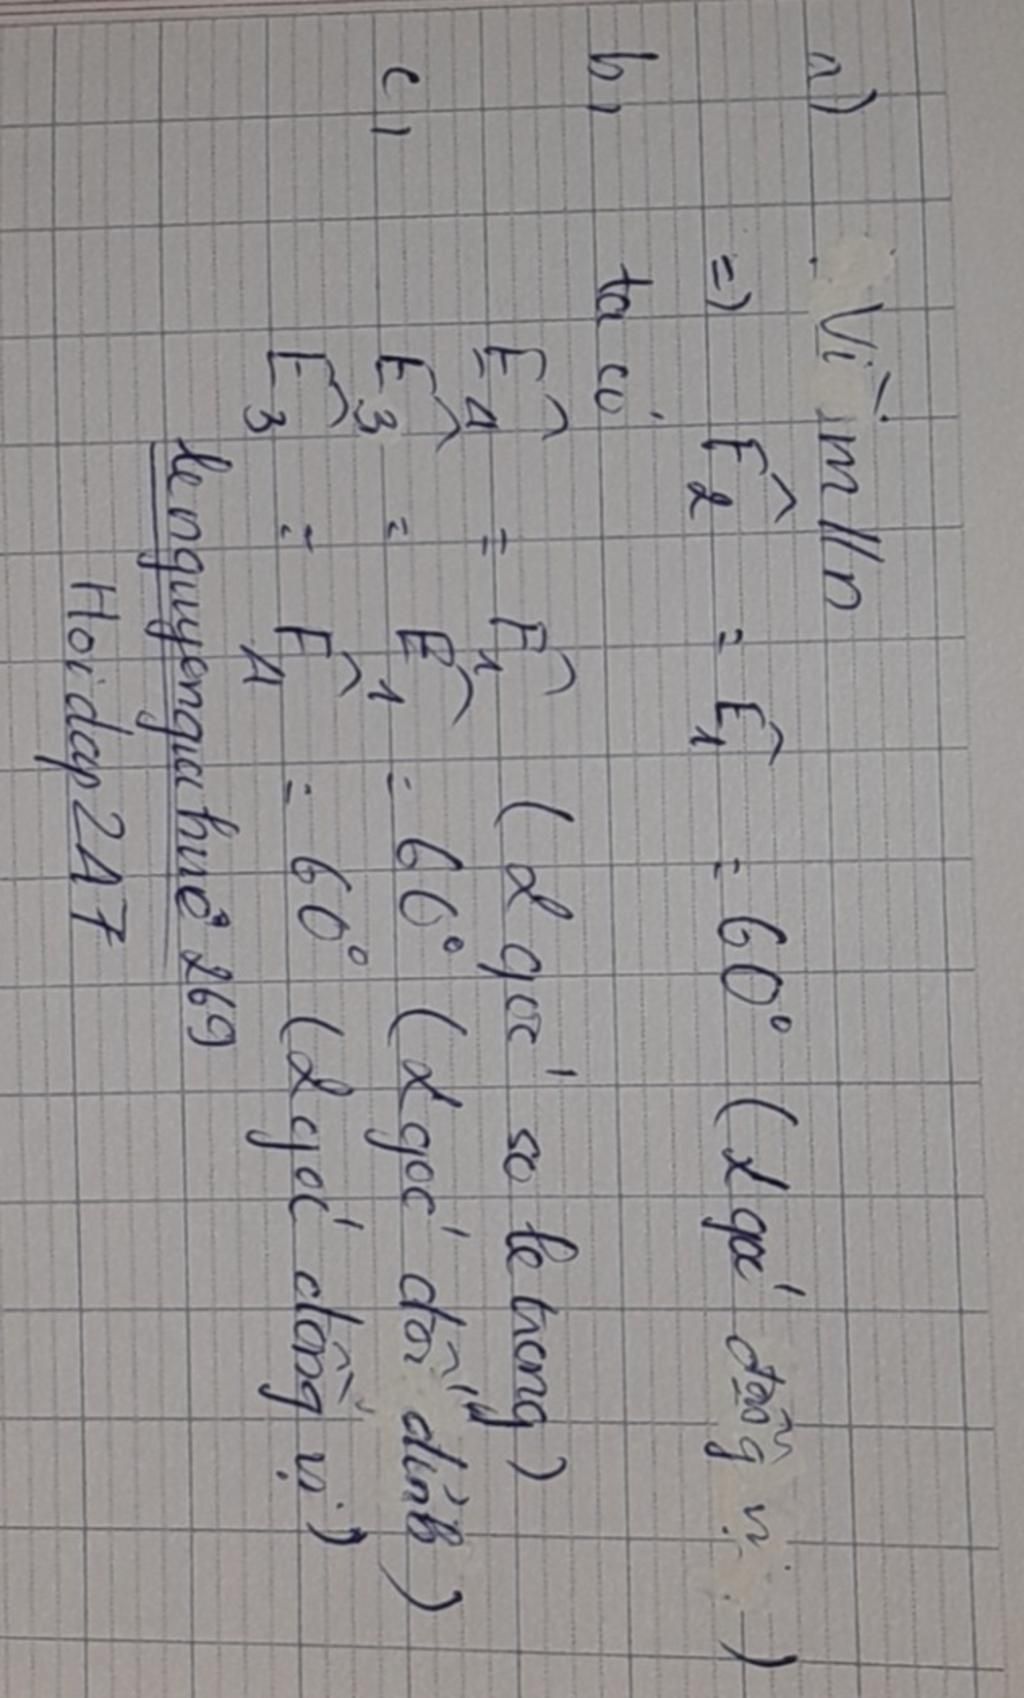 a) Vì m//n
=) F̂2 = Ê1 = 60° (2 góc đồng vị)
b, ta có
Ê4 = F̂1 (2 góc so le trong)
c, Ê3 = Ê1 = 60° (2 góc đối đỉnh)
Ê3 = F̂4 = 60° (2 góc đồng vị)
lenguyengiahuê269
Hoidap247